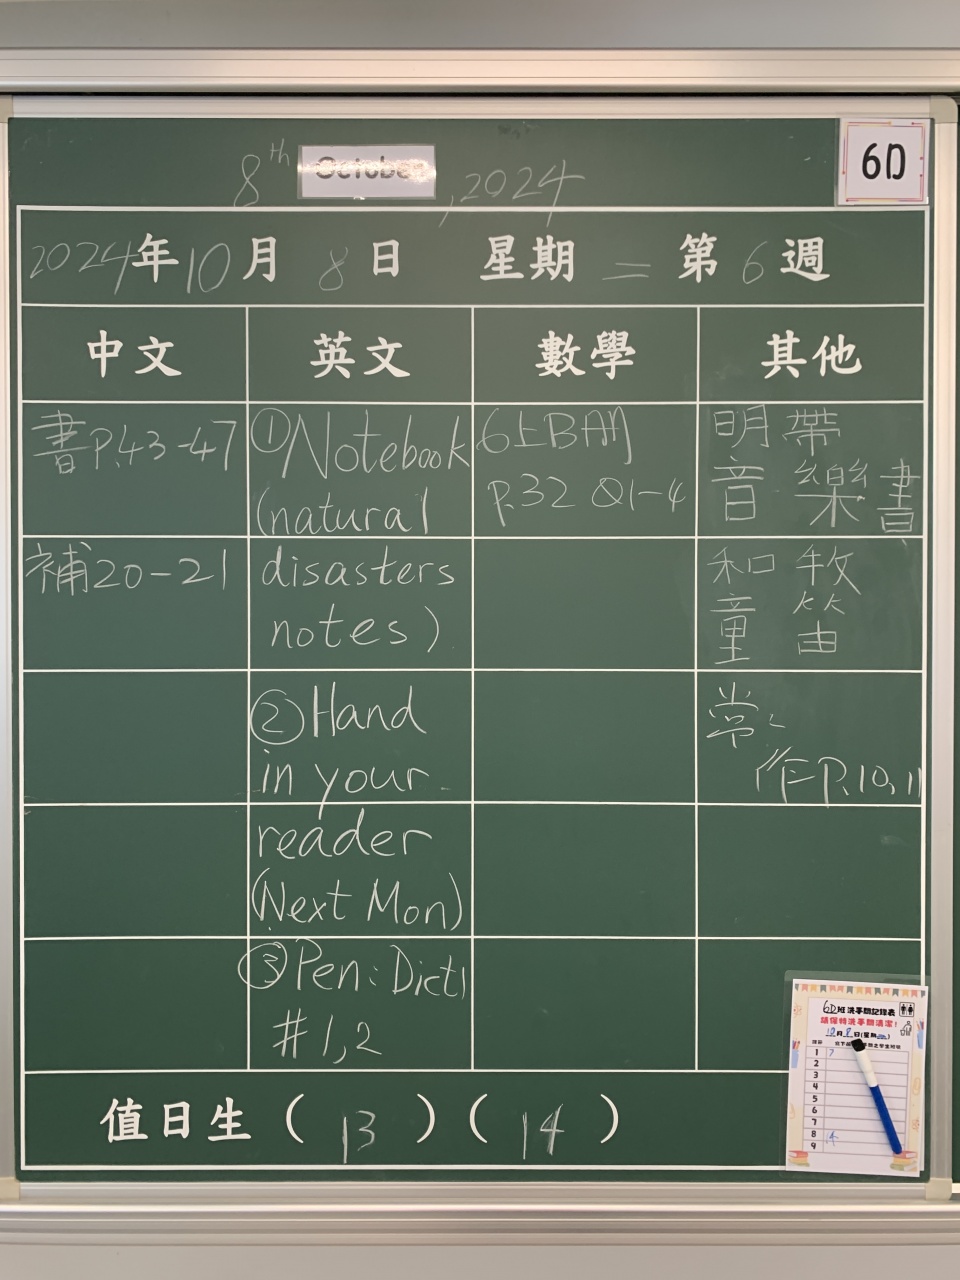 8th October, 2024
6D
2024年10月8日 星期二 第6週
中文 英文 數學 其他
書P.43-47
補20-21
①Notebook
(natural
disasters
notes)
②Hand
in your
reader
(Next Mon)
③Pen: Dict1
#1,2
6上B冊
P.32 Q1-4
明帶
音樂書
和牧
童笛
常:
作P.10,11
6D班 洗手間記錄表
請保持洗手間清潔!
10月8日(星期二)
1 7
2
3
4
5
6
7
8 14
9
值日生 ( 13 ) ( 14 )